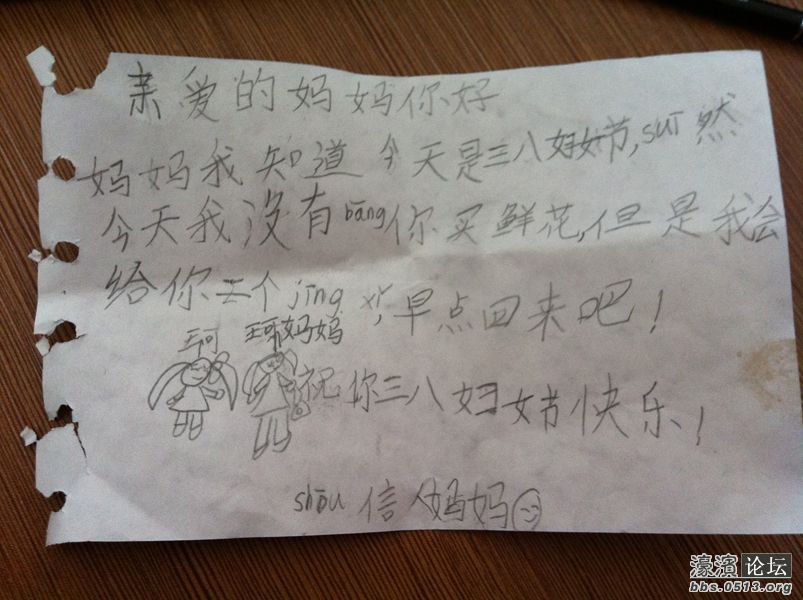 亲爱的妈妈你好
妈妈我知道今天是三八妇女节,suī然
今天我没有bāng你买鲜花,但是我会
给你三个jīng xǐ,早点回来吧!
王珂 王珂妈妈
祝你三八妇女节快乐!
shōu信人妈妈
濠滨论坛
bbs.0513.org